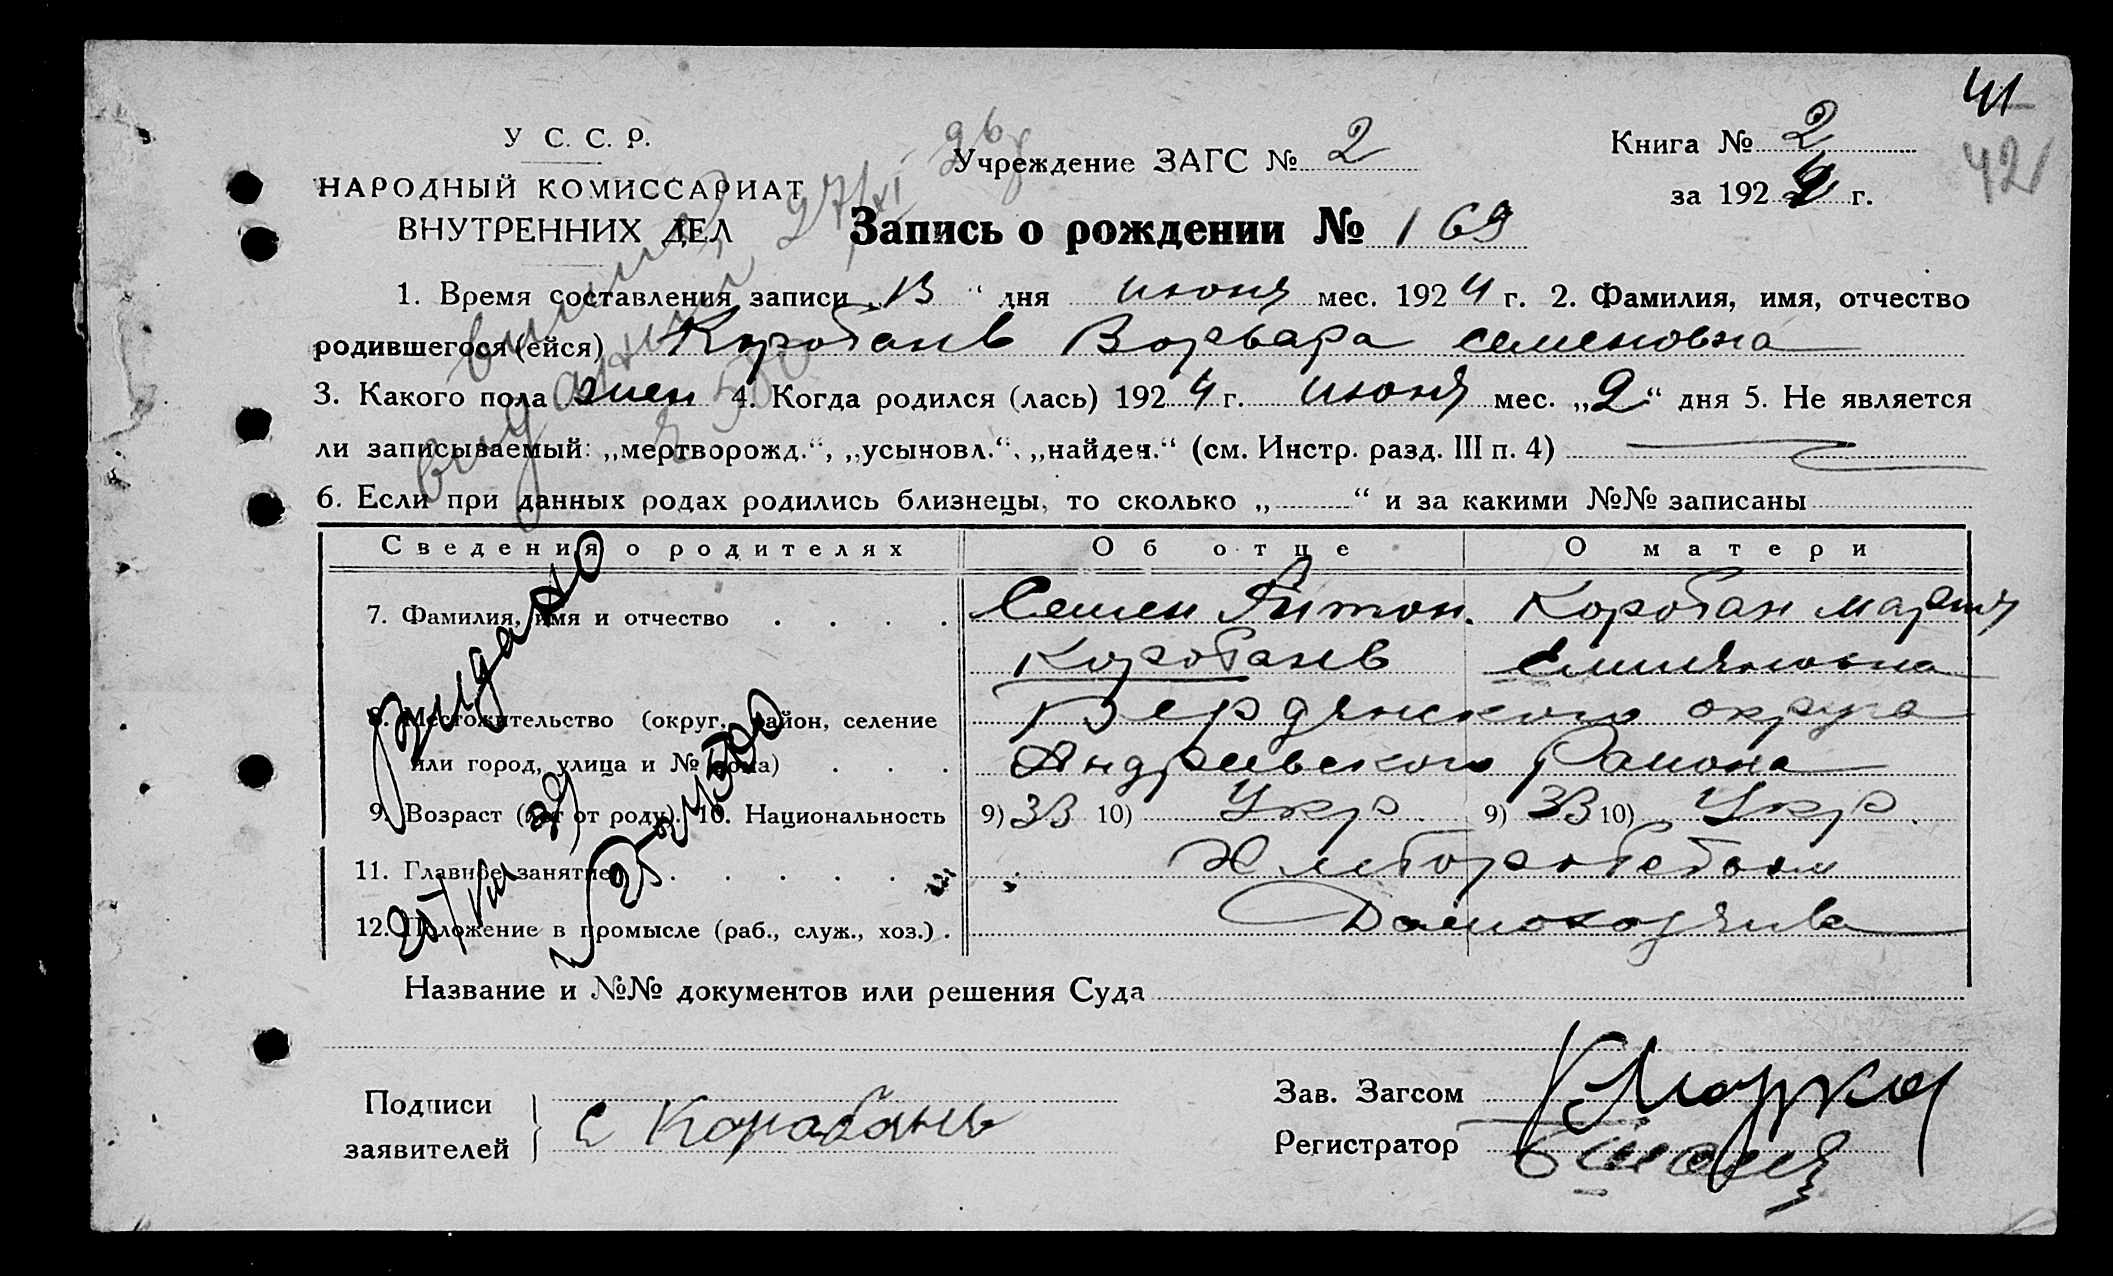 41
42
У С. С. Р.
НАРОДНЫЙ КОМИССАРИАТ
ВНУТРЕННИХ ДЕЛ
Учреждение ЗАГС № 2
Книга № 2
за 1924 г.
Запись о рождении № 169
1. Время составления записи „13“ дня июня мес. 1924 г. 2. Фамилия, имя, отчество
родившегося (ейся) Коробанев Ворвара семеновна
3. Какого пола жен 4. Когда родился (лась) 1924 г. июня мес. „2“ дня 5. Не является
ли записываемый: „мертворожд.“, „усыновл.“, „найден.“ (см. Инстр. разд. III п. 4)
6. Если при данных родах родились близнецы, то сколько „ “ и за какими №№ записаны
Сведения о родителях Об отце О матери
7. Фамилия, имя и отчество Семен Антон. Коробан мария
Коробанев Емияновна
8. Местожительство (округ, район, селение Бердянского округа
или город, улица и № дома) Андреевского Района
9. Возраст (лет от роду). 10. Национальность 9) 33 10) Укр 9) 33 10) Укр.
11. Главное занятие
12. Положение в промысле (раб., служ., хоз.) . Домохозяйка
Выдано
Название и №№ документов или решения Суда
Подписи
заявителей
С Карабань
Зав. Загсом
Регистратор